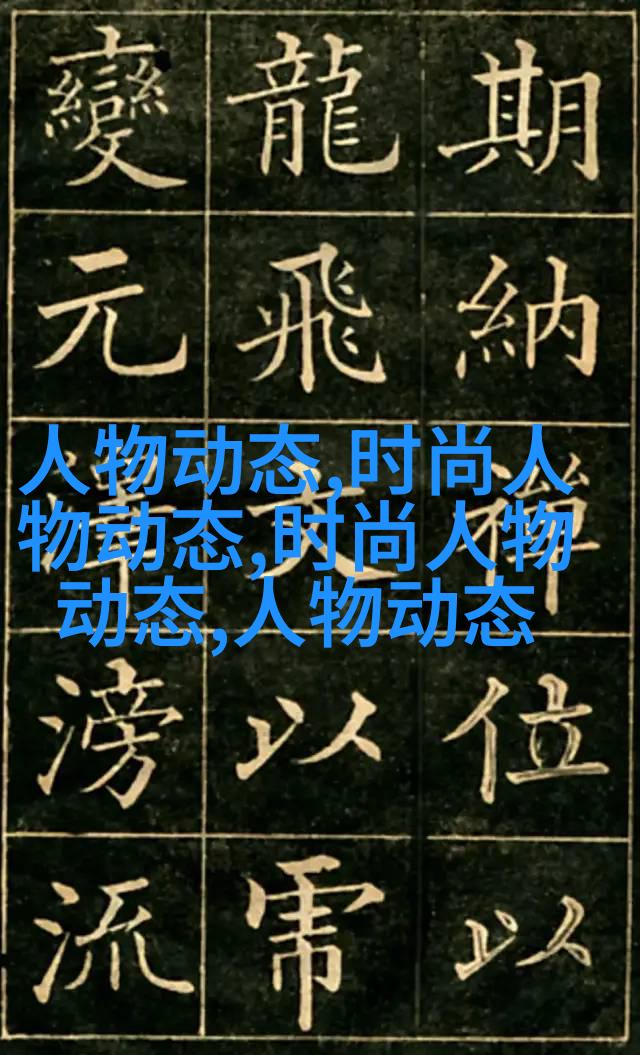 期納禪位以
龍飛文以
變元滂流
人物动态,时尚人
物动态,时尚人物
动态,人物动态